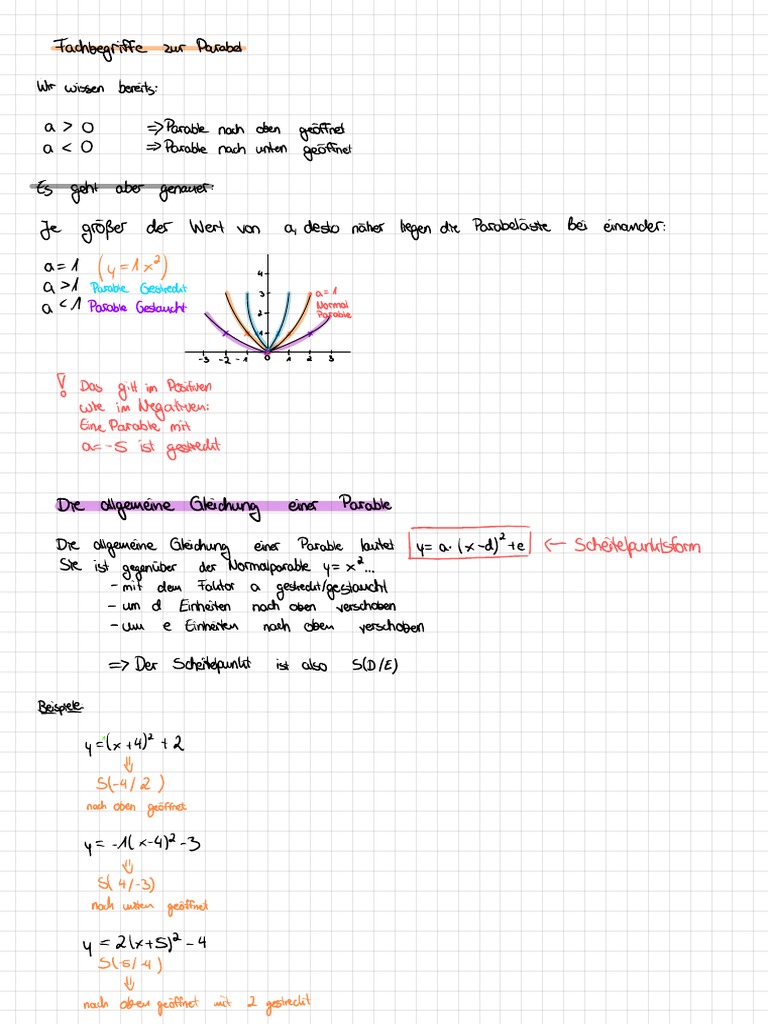 Fachbegriffe zur Parabel
Wir wissen bereits:
a > 0 => Parable nach oben geöffnet
a < 0 => Parable nach unten geöffnet
Es geht aber genauer:
Je größer der Wert von a, desto näher liegen die Parabeläste bei einander:
a = 1 (y = 1x²)
a > 1 Parable Gestreckt
a < 1 Parable Gestaucht
4
3
2
1
-3 -2 -1 0 1 2 3
a = 1
Normal
Parable
! Das gilt im Positiven
wie im Negativen:
Eine Parable mit
a = -5 ist gestreckt
Die allgemeine Gleichung einer Parable
Die allgemeine Gleichung einer Parable lautet y = a · (x - d)² + e <- Scheitelpunktsform
Sie ist gegenüber der Normalparable y = x² ...
- mit dem Faktor a gestreckt/gestaucht
- um d Einheiten nach oben verschoben
- um e Einheiten nach oben verschoben
=> Der Scheitelpunkt ist also S(D/E)
Beispiele
y = (x + 4)² + 2
⇓
S(-4/2)
nach oben geöffnet
y = -1(x - 4)² - 3
⇓
S(4/-3)
nach unten geöffnet
y = 2(x + 5)² - 4
S(-5/-4)
⇓
nach oben geöffnet mit 2 gestreckt